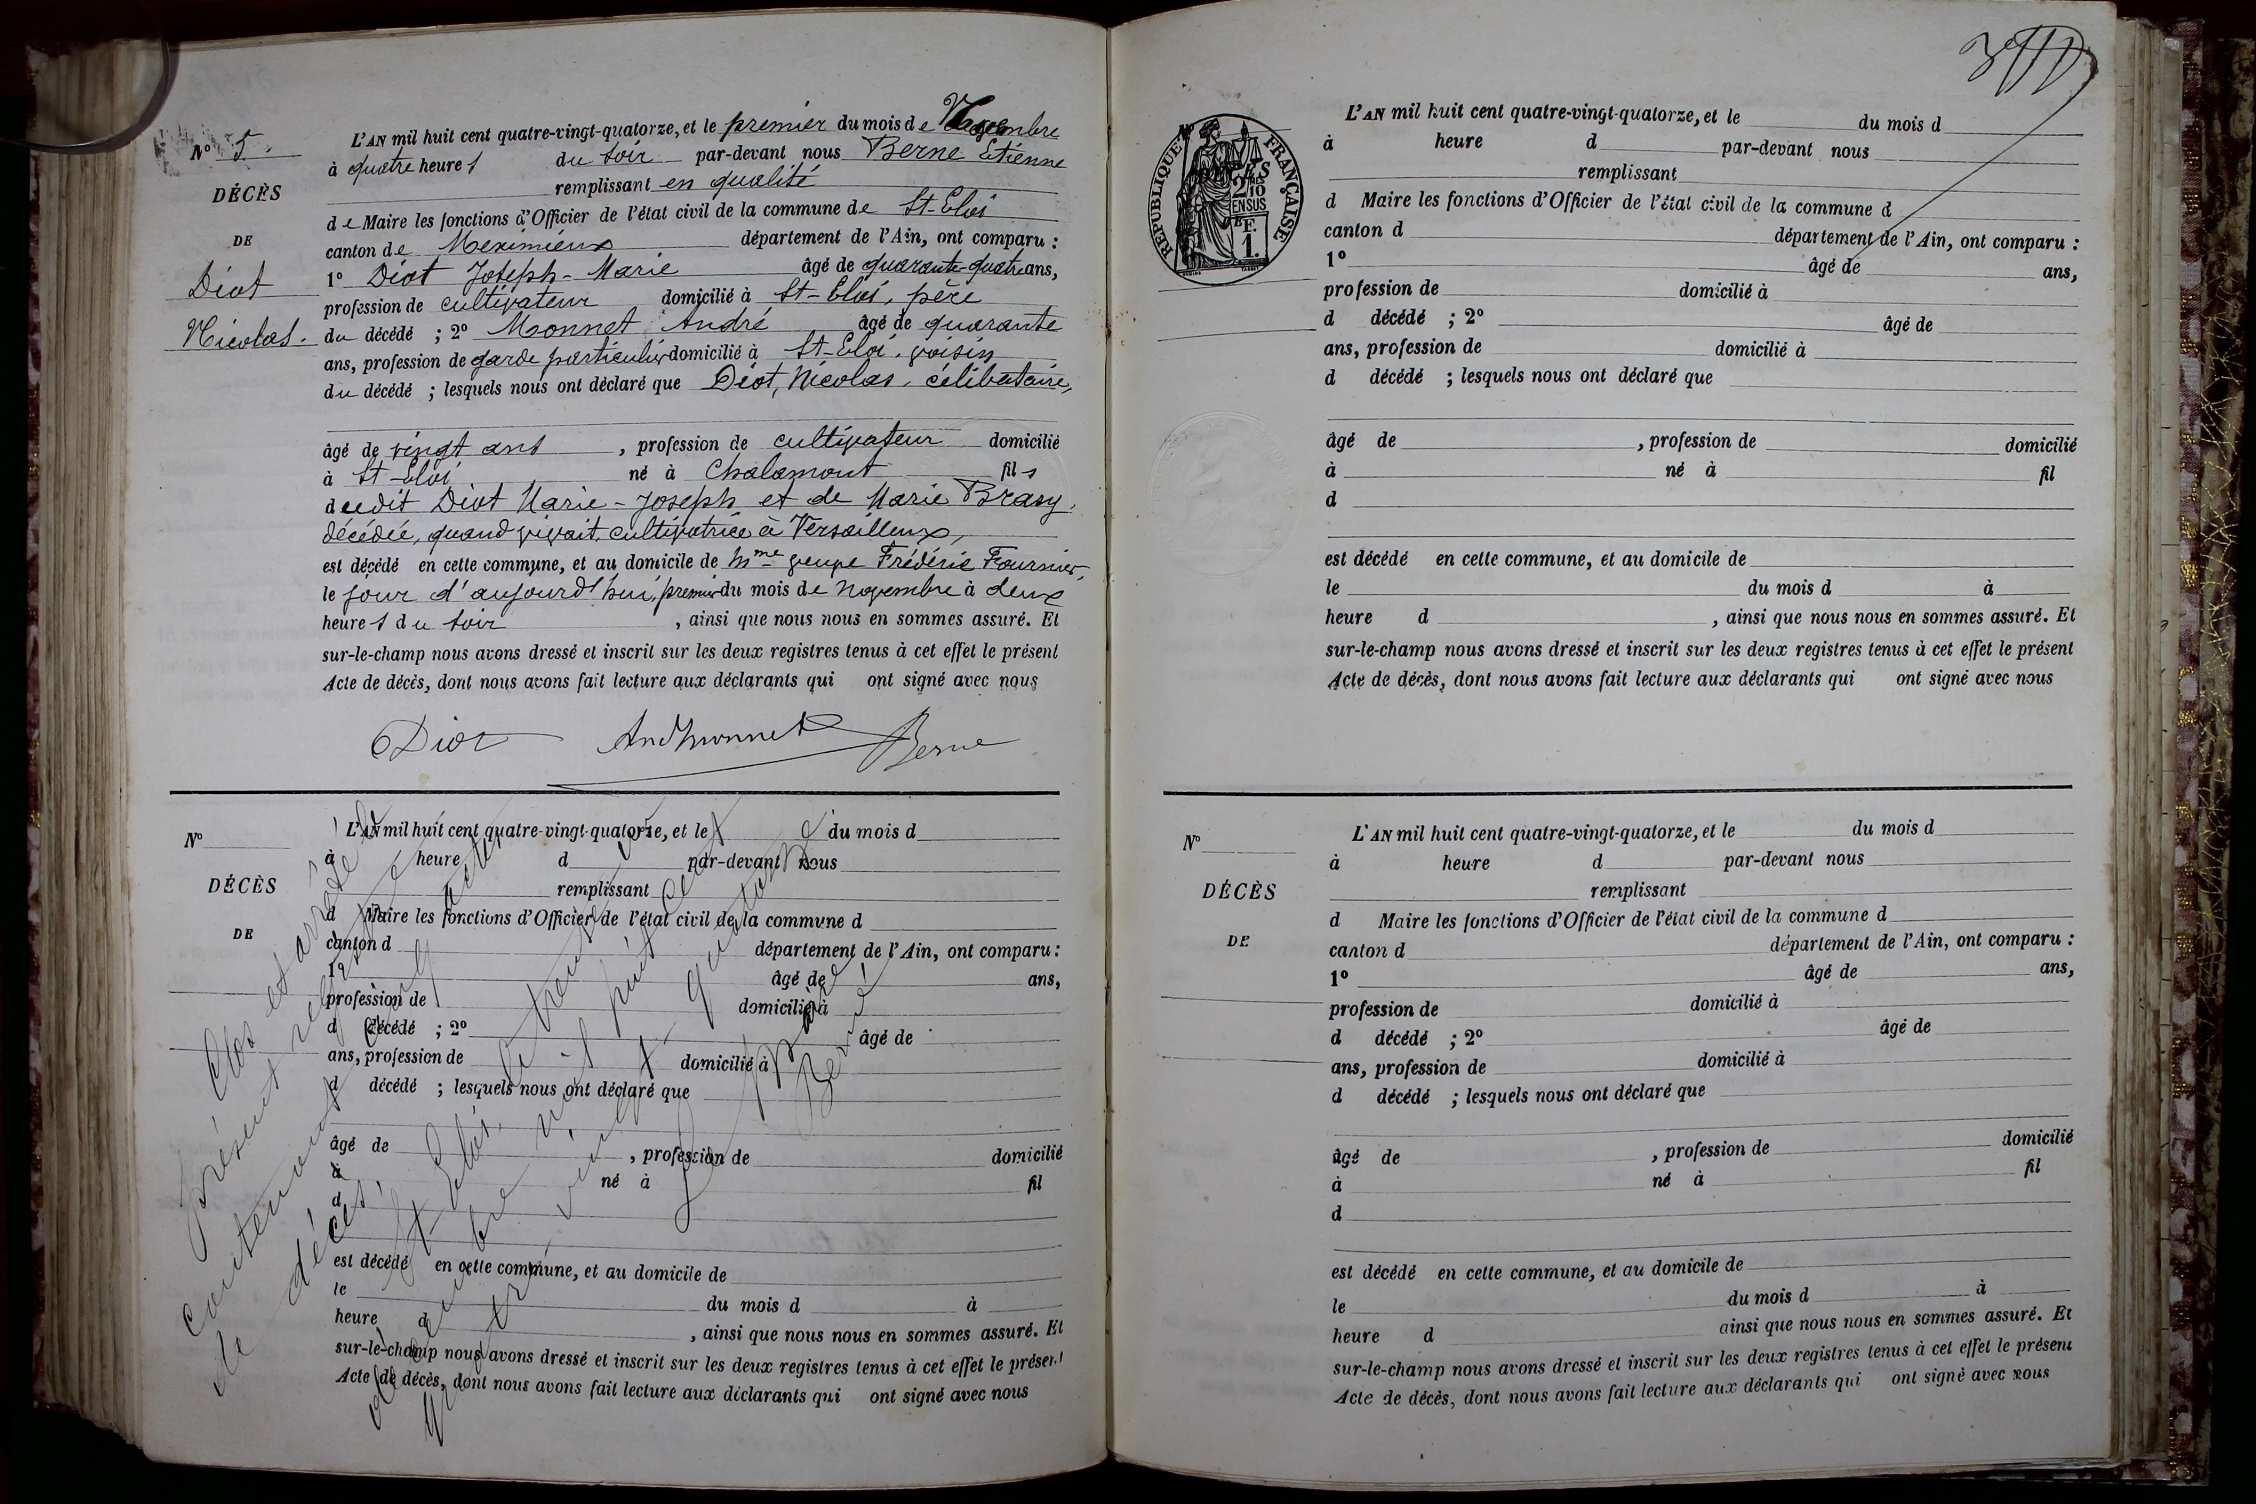 N° 5.
DÉCÈS
DE
Diot
Nicolas.
L'AN mil huit cent quatre-vingt-quatorze, et le premier du mois de Novembre
à quatre heures du soir par-devant nous Berne Etienne
remplissant en qualité
de Maire les fonctions d'Officier de l'état civil de la commune de St-Eloi
canton de Meximieux département de l'Ain, ont comparu :
1° Diot Joseph-Marie âgé de quarante-quatre ans,
profession de cultivateur domicilié à St-Eloi, père
du décédé ; 2° Monnet André âgé de quarante
ans, profession de garde particulier domicilié à St-Eloi, voisin
du décédé ; lesquels nous ont déclaré que Diot, Nicolas, célibataire,
âgé de vingt ans , profession de cultivateur domicilié
à St-Eloi né à Chalamont fils
dudit Diot Marie-Joseph et de Marie Brasy,
décédée, quand vivait, cultivatrice à Versailleux,
est décédé en cette commune, et au domicile de Mme veuve Frédéric Fournier,
le jour d'aujourd'hui, premier du mois de novembre à deux
heures du soir , ainsi que nous nous en sommes assuré. Et
sur-le-champ nous avons dressé et inscrit sur les deux registres tenus à cet effet le présent
Acte de décès, dont nous avons fait lecture aux déclarants qui ont signé avec nous
Diot AndMonnet Berne
N°
DÉCÈS
DE
L'AN mil huit cent quatre-vingt-quatorze, et le du mois d
à heure d par-devant nous
remplissant
d Maire les fonctions d'Officier de l'état civil de la commune d
canton d département de l'Ain, ont comparu :
1° âgé de ans,
profession de domicilié à
d décédé ; 2° âgé de
ans, profession de domicilié à
d décédé ; lesquels nous ont déclaré que
âgé de , profession de domicilié
à né à fil
d
est décédé en cette commune, et au domicile de
le du mois d à
heure d , ainsi que nous nous en sommes assuré. Et
sur-le-champ nous avons dressé et inscrit sur les deux registres tenus à cet effet le présent
Acte de décès, dont nous avons fait lecture aux déclarants qui ont signé avec nous
Clos et arrêté le
présent registre
contenant cinq actes
de décès.
St-Eloi, le trente et un
décembre mil huit cent
quatre vingt-quatorze
Le Maire
Berne
RÉPUBLIQUE FRANÇAISE
2/10
EN SUS
1.F.
L'AN mil huit cent quatre-vingt-quatorze, et le du mois d
à heure d par-devant nous
remplissant
d Maire les fonctions d'Officier de l'état civil de la commune d
canton d département de l'Ain, ont comparu :
1° âgé de ans,
profession de domicilié à
d décédé ; 2° âgé de
ans, profession de domicilié à
d décédé ; lesquels nous ont déclaré que
âgé de , profession de domicilié
à né à fil
d
est décédé en cette commune, et au domicile de
le du mois d à
heure d , ainsi que nous nous en sommes assuré. Et
sur-le-champ nous avons dressé et inscrit sur les deux registres tenus à cet effet le présent
Acte de décès, dont nous avons fait lecture aux déclarants qui ont signé avec nous
N°
DÉCÈS
DE
L'AN mil huit cent quatre-vingt-quatorze, et le du mois d
à heure d par-devant nous
remplissant
d Maire les fonctions d'Officier de l'état civil de la commune d
canton d département de l'Ain, ont comparu :
1° âgé de ans,
profession de domicilié à
d décédé ; 2° âgé de
ans, profession de domicilié à
d décédé ; lesquels nous ont déclaré que
âgé de , profession de domicilié
à né à fil
d
est décédé en cette commune, et au domicile de
le du mois d à
heure d ainsi que nous nous en sommes assuré. Et
sur-le-champ nous avons dressé et inscrit sur les deux registres tenus à cet effet le présent
Acte de décès, dont nous avons fait lecture aux déclarants qui ont signé avec nous